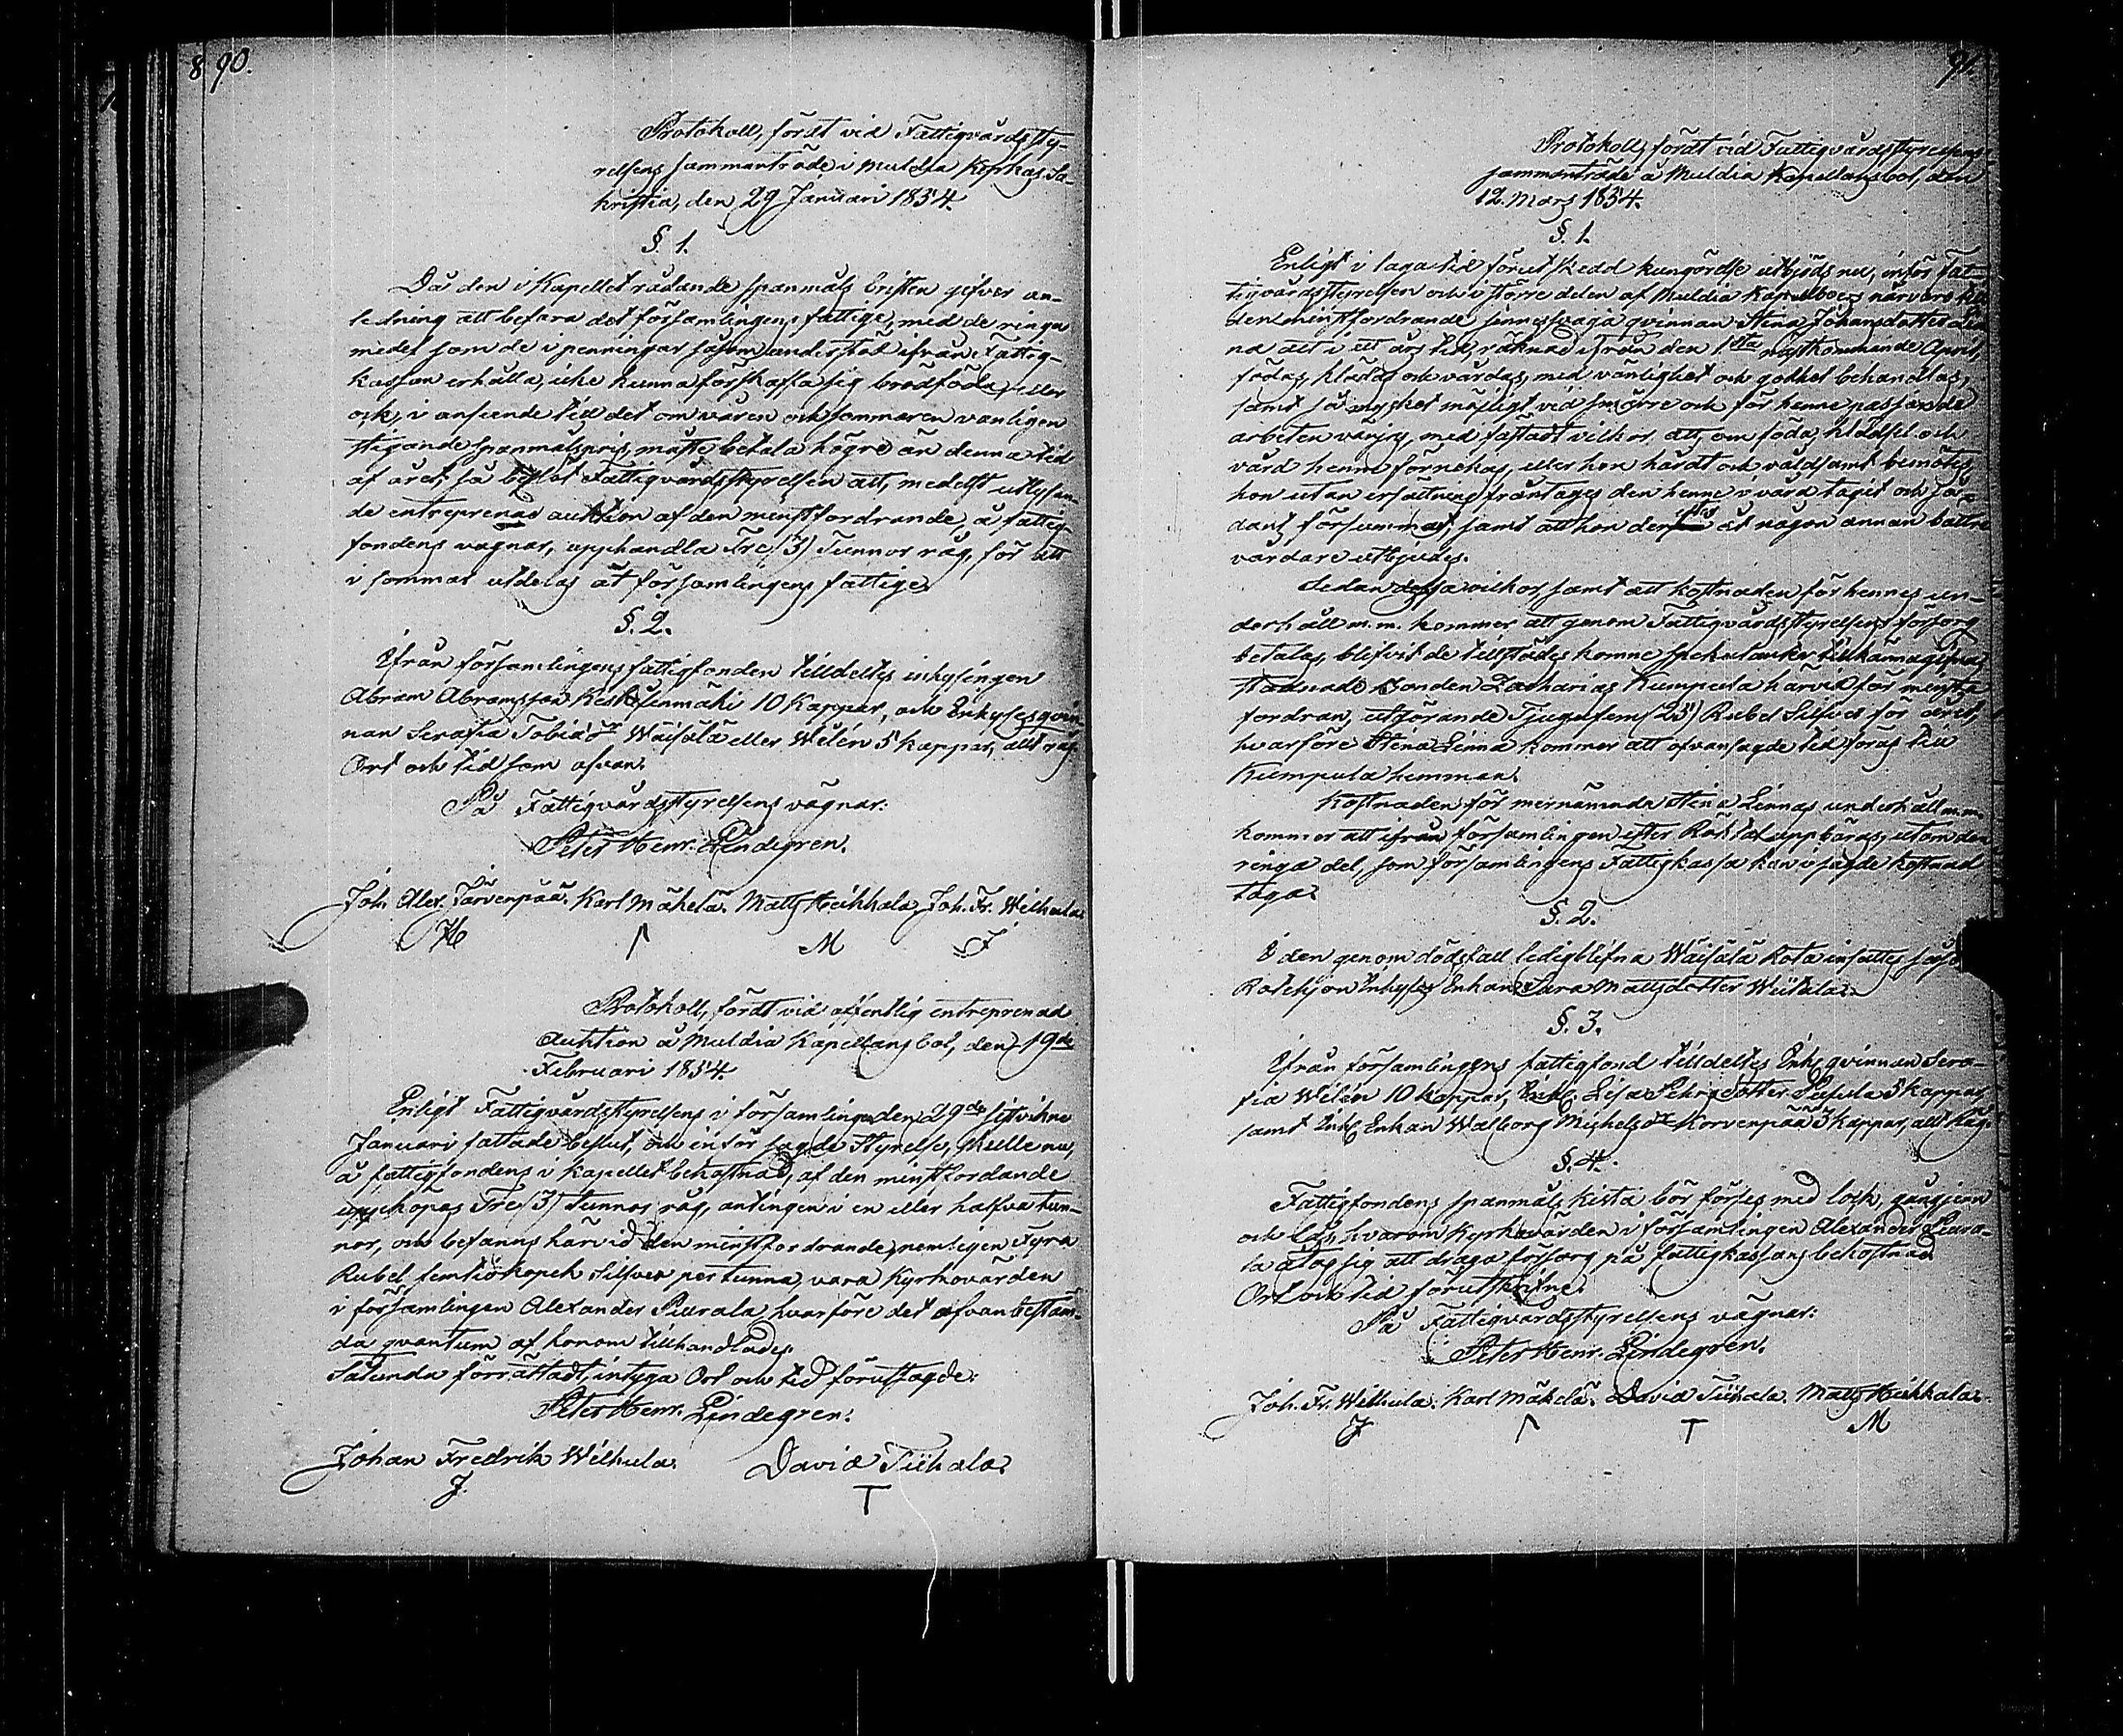 8 90.
Protokoll, fördt vid Fattigvårdssty-
relsens sammanträde i Muldia Kyrkas Sa-
kristia, den 29 Januari 1854.
§. 1.
Då den i Kapellet rådande spanmåls bristen gifver an-
ledning att befara det församlingens fattige, med de ringa
medel som de i penningar såsom understöd ifrån Fattig-
kassan erhålla, icke kunna förskaffa sig brödföda, eller
ock, i anseende till det om våren och sommaren vanligen
stigande spanmålspris, måste betala högre än denna tid
af året; så beslöt Fattigvårdsstyrelsen att, medelst utlysan-
de entreprenad auktion af den minstfordrande, å fattig-
fondens vägnar, upphandla Tre (3) Tunnor råg, för att
i sommar utdelas åt församlingens fattige.
§. 2.
Ifrån församlingens fattigfonden tilldeltes inhysingen
Abram Abramsson Keskisenmäki 10 Kappar, och Enkysesqvin-
nan Serafia Tobiasdr Waisälä eller Welén 5 kappar, allt råg.
Ort och tid som ofvan.
På Fattigvårdsstyrelsens vägnar:
Peter Henr. Lindegren.
Joh. Alex. Järvenpää. Karl Mäkelä. Matts Heikkala. Joh. Fr. Wilhula.
M J
Protokoll, fördt vid offentlig entreprenad
Auktion å Muldia Kapellans bol, den 19de
Februari 1854.
Enligt Fattigvårdsstyrelsens i församlingen den 29de sistvikne
Januari fattade beslut, och inför sagde Styrelse, skulle nu,
å fattigfondens i kapellet bekostnad, af den minstfordrande
uppköpas Tre (3) Tunnor råg, antingen i en eller halfva tun-
nor, och befanns härvid den minstfordrande, nemligen Fyra
Rubel femtio kopek Silfver per tunna, vara Kyrkovärden
i församlingen Alexander Piurala, hvarföre det ofvanbestäm-
da qvantum af honom tillhandlades.
Sålunda förrättadt, intyga Ort och tid förutsagde:
Peter Henr. Lindegren.
Johan Fredrik Wilhula. David Tiihala.
J T
91.
Protokoll, fördt vid Fattigvårdsstyrelsens
sammanträde å Muldia Kapellansbol, den
12. Mars 1854.
§. 1.
Enligt i laga tid förut skedd kungörelse utbjöds nu, inför Fat-
tigvårdsstyrelsen och i större delen af Muldia Kapellboers närvaro till
den minstfordrande sinnessvaga qvinnan Stina Johansdotter Lin-
na att i ett års tid, räknad ifrån den 1sta nästkommande April,
födas, klädas och vårdas, med vänlighet och godhet behandlas,
samt så mycket möjligt vid smärre och för henne passande
arbeten vänjas, med fästadt vilkor att, om föda, klädsel och
vård henne förnekas, eller hon hårdt och våldsamt bemötes,
hon utan ersättning fråntages den henne i vård tagit och så-
dant försummat, samt att hon derefter åt någon annan bättre
vårdare utbjudes.
Sedan dessa vilkor, samt att kostnaden för hennes un-
derhåll m.m. kommer att genom Fattigvårdsstyrelsens försorg
betalas, blifvit de tillstädes komne spekulanter tillkännagifvne,
stadnade Bonden Zacharias Kumpula härvid för minsta
fordran, utgörande Tjugufem (25) Rubel Silfver för året,
hvarföre Stina Linna kommer att ofvansagde tid föras till
Kumpula hemman.
Kostnaden för mernämnda Stina Linnas underhåll m.m.
kommer att ifrån församlingen efter Röktal uppbäras, utom den
ringa del, som församlingens Fattigkassa kan i sagde kostnad
taga.
§. 2.
I den genom dödsfall ledigblifna Waisälä Rota insattes såsom
Rotehjon Inhyses Enkan Sara Mattsdotter Weitala.
§. 3.
Ifrån församlingens fattigfond tilldeltes Inh. qvinnan Sera-
fia Welén 10 kappar, Lisa Pehrsdotter 5 kappar
samt Inh. Enkan Walborg Michelsdr Korvenpää 3 kappar, allt Råg.
§. 4.
Fattigfondens spanmåls kista bör förses med lock, gångjern
och lås, hvarom Kyrkovärden i församlingen Alexander Piura-
la åtog sig att draga försorg på fattigkassans bekostnad.
Ort och tid förutskrifne.
På Fattigvårdsstyrelsens vägnar:
Peter Henr. Lindegren.
Joh. Fr. Wilhula. Karl Mäkelä. David Tiihala. Matts Heikkala.
J T M